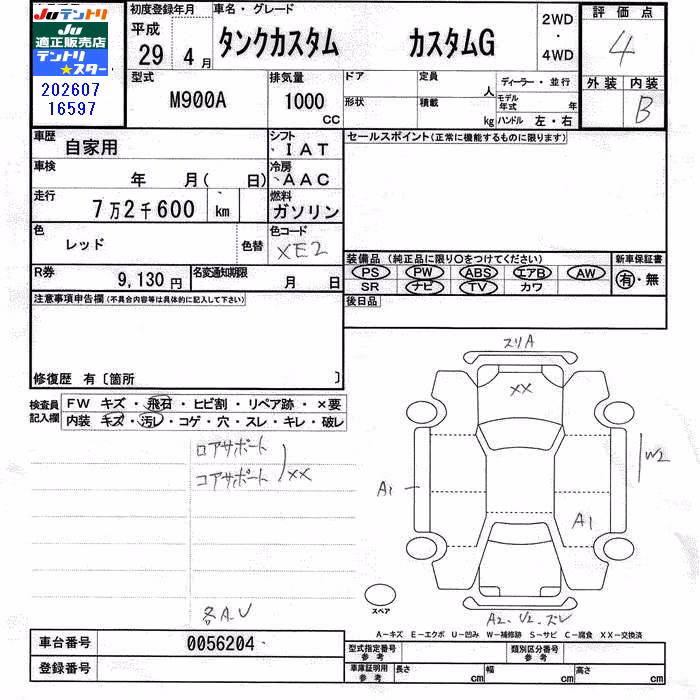 Juテントリ
Ju
適正販売店
テントリ
★スター
202607
16597
初度登録年月
平成
29 4 月
車名・グレード
タンクカスタム カスタムG
2WD
・
4WD
評価点
4
外装 内装
B
型式
M900A
排気量
1000
CC
ドア
定員
人
形状
積載
kg
ディーラー・並行
モデル年式 年
ハンドル 左・右
車歴
自家用
シフト
IAT
車検
年 月( 日)
冷房
AAC
走行
7万2千600 km
燃料
ガソリン
色
レッド
色替
色コード
XE2
R券
9,130 円
名変通知期限
月 日
セールスポイント(正常に機能するものに限ります)
装備品(純正品に限り〇をつけてください)
PS PW ABS エアB AW
SR ナビ TV カワ
新車保証書
有・無
後日品
注意事項申告欄(不具合内容等は具体的に記入して下さい)
修復歴 有〔箇所 〕
検査員
記入欄
FW キズ・飛石・ヒビ割・リペア跡・×要
内装 キズ・汚レ・コゲ・穴・スレ・キレ・破レ
ロアサポート
コアサポート
XX
各A.U
スリA
XX
A1
W2
A1
スペア
A2、U2、ズレ
A−キズ E−エクボ U−凹み W−補修跡 S−サビ C−腐食 XX−交換済
車台番号
0056204
登録番号
型式指定番号
参考
類別区分番号
参考
車庫証明用
参考
長さ cm 幅 cm 高さ cm